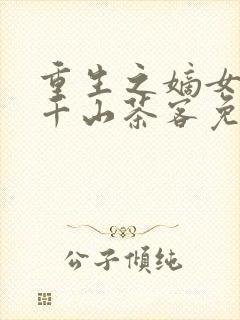 重生之嫡女
千山茶客免
公子倾纯